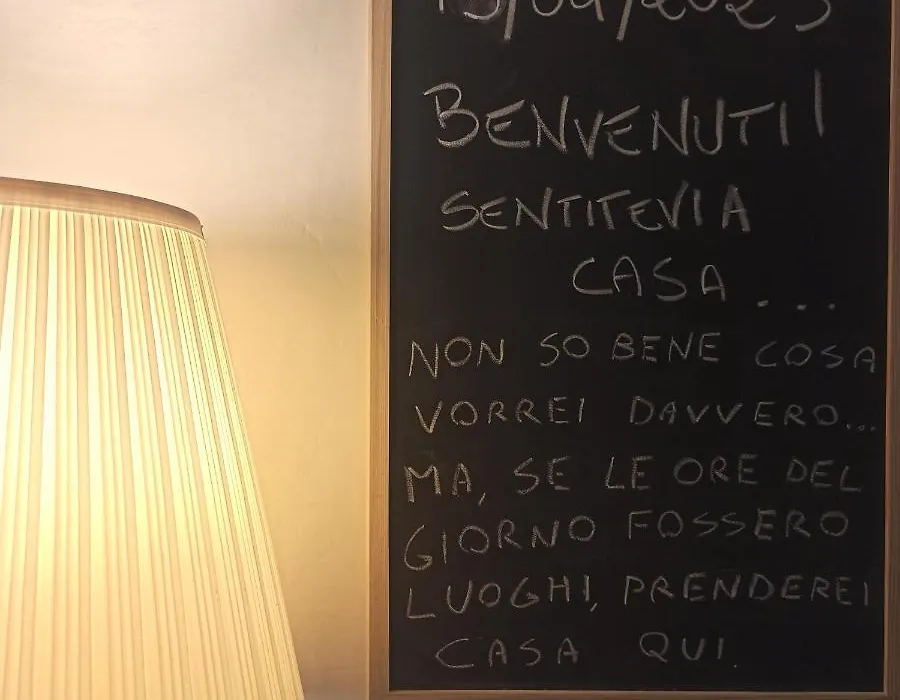 BENVENUTI!
SENTITEVI A
CASA ...
NON SO BENE COSA
VORREI DAVVERO...
MA, SE LE ORE DEL
GIORNO FOSSERO
LUOGHI, PRENDEREI
CASA QUI.